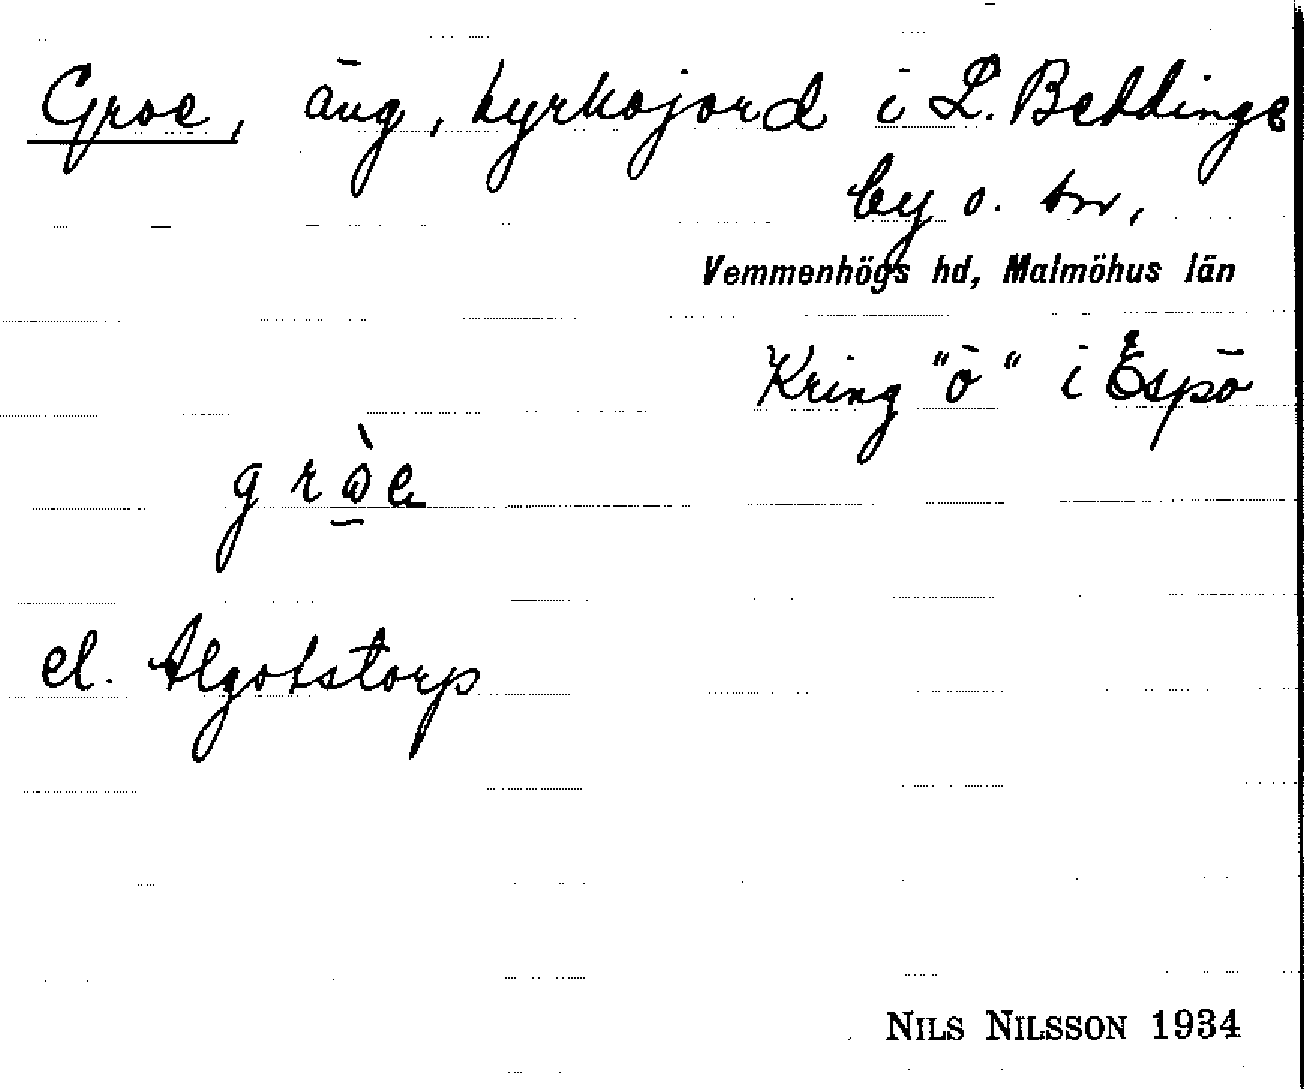 Groe, äng, kyrkojord i L. Beddinge
by o. sn,
Vemmenhögs hd, Malmöhus län
Kring "ö" i Espö
el. Algotstorp
NILS NILSSON 1934